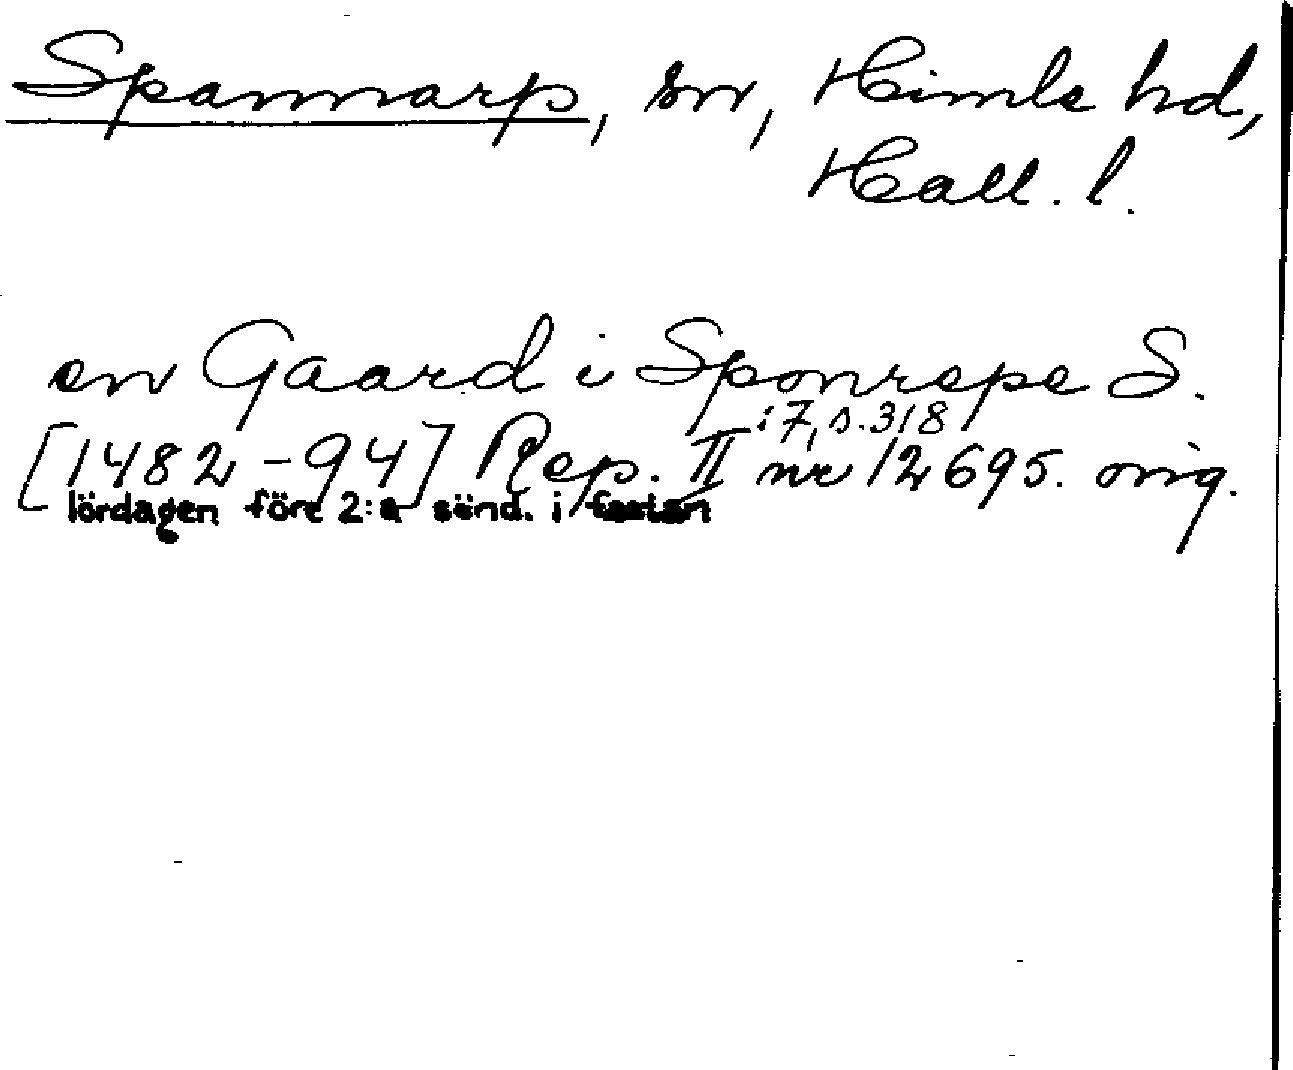 Spannarp, sn, Himle hd,
Hall. l.
en Gaard i Sponrepe S.
: 7, s. 318
[1482-94] Rep. II nr 12695. orig.
lördagen före 2:a sönd. i fastan